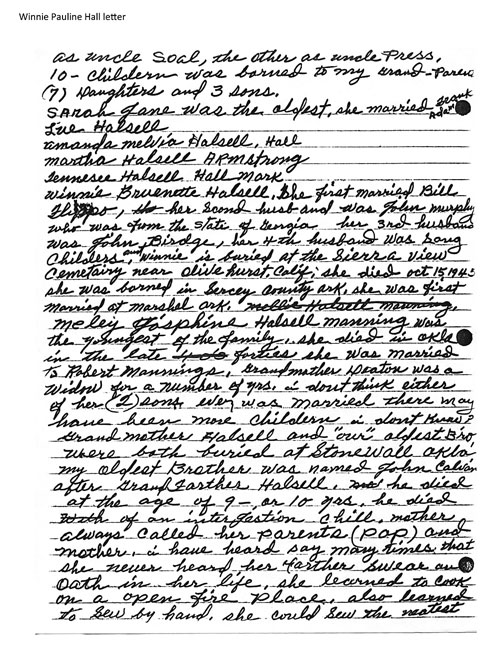 Winnie Pauline Hall letter
as uncle Soal, the other as uncle Press,
10 - childern was borned to my Grand-Paren
(7) Daughters and 3 sons.
SARah Jane was the oldest, she married Frank Adam
Eve Halsell
amanda melvia Halsell, Hall
martha Halsell ARmstrong
Tennesee Halsell Hall mark
Winnie Bruenette Halsell, She first married Bill
her Second husband was John murphy
who was from the State of Georgia her 3rd husband
was John Birdge, her 4th husband was Doug
Childers, and Winnie is buried at the Sierra View
Cemetairy near Olive hurst, Calif; she died oct 15 194
she was borned in Sercey County ark, she was first
married at marshel ark. mellie Halsell manning,
meley Josphine Halsell manning was
the youngest of the family, she died in okla
in the late forties she was married
To Robert Mannings, Grandmother Deaton was a
Widow for a number of yrs. i dont think either
of her (2) sons, ever was married there may
have been more Childern i dont know?
Grand mother Halsell and "our" oldest Bro,
were both buried at StoneWall okla,
my oldest Brother was named John Calvin
after Grand Farther Halsell, he died
at the age of 9 - or 10 yrs. he died
of an interjestion chill, mother
always called her parents (pap) and
mother, i have heard say many times that
she never heard her Farther swear an
Oath in her life, she learned to cook
on a open fire place, also learned
to Sew by hand, she could Sew the neatest